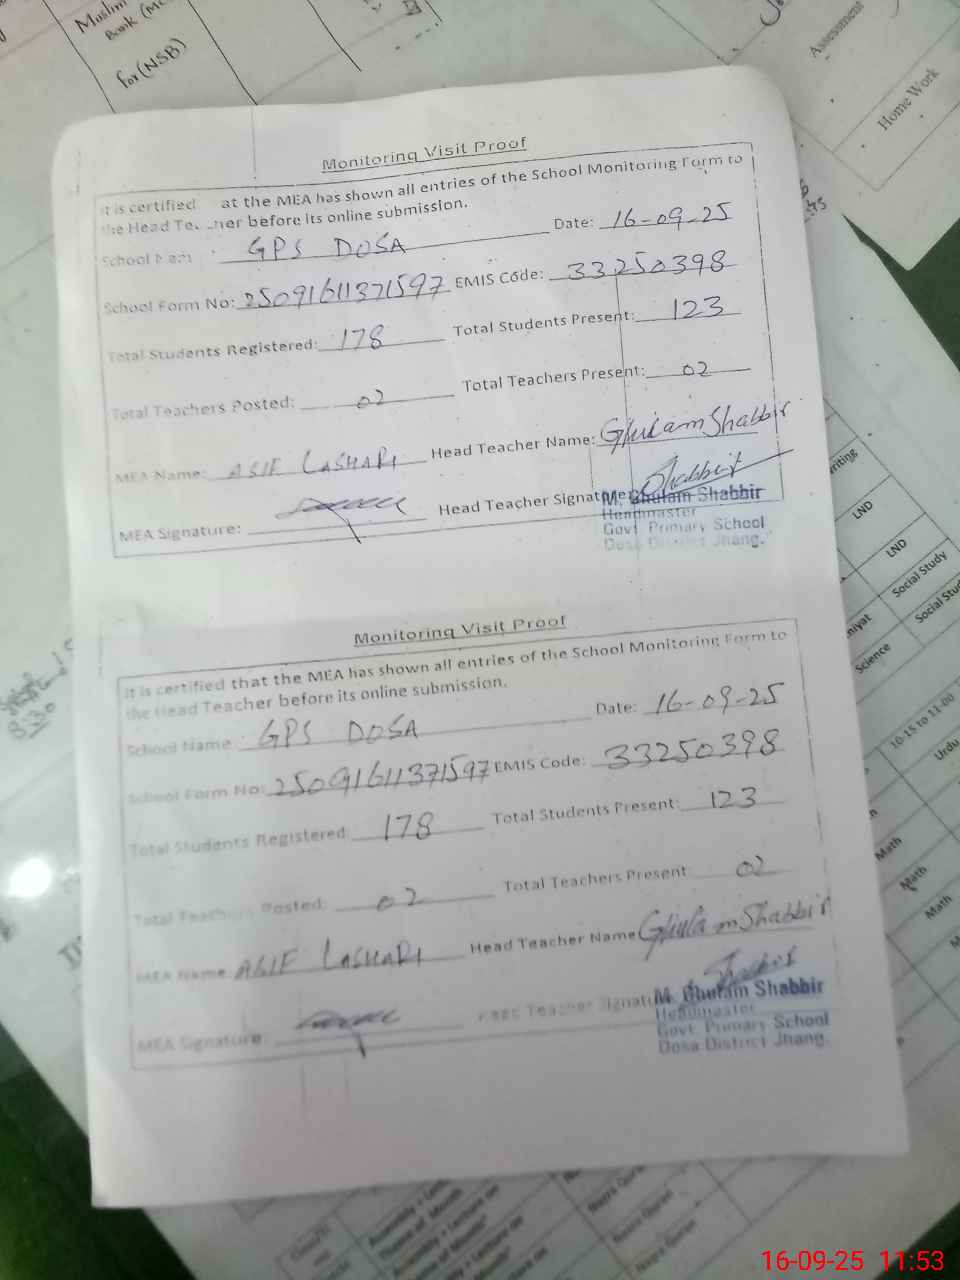 Muslim
Book
for (NSB)
Assessment
Home Work
Monitoring Visit Proof
It is certified at the MEA has shown all entries of the School Monitoring Form to
the Head Te ner before its online submission.
Date: 16-09-25
School Nam GPS DOSA
School Form No: 25091611371597 EMIS Code: 33250398
Total Students Registered: 178 Total Students Present: 123
Total Teachers Posted: 02 Total Teachers Present: 02
MEA Name: ASIF LASHARI Head Teacher Name: Ghulam Shabbir
MEA Signature: Head Teacher Signature Shabbir
M. Ghulam Shabbir
Headmaster
Govt Primary School
Dosa District Jhang.
Monitoring Visit Proof
It is certified that the MEA has shown all entries of the School Monitoring Form to
the Head Teacher before its online submission.
Date: 16-09-25
School Name GPS DOSA
School Form No: 25091611371597 EMIS Code: 33250398
Total Students Registered 178 Total Students Present: 123
Total Teachers Posted: 02 Total Teachers Present 02
MEA Name ASIF LASHARI Head Teacher Name Ghulam Shabbir
MEA Signature: Head Teacher Signatu
M. Ghulam Shabbir
Headmaster
Govt Primary School
Dosa District Jhang.
8:30
writing
LND
LND
Social Study
Social Stud
Science
10-15 to 11-00
Urdu
Math
Math
Math
16-09-25 11:53